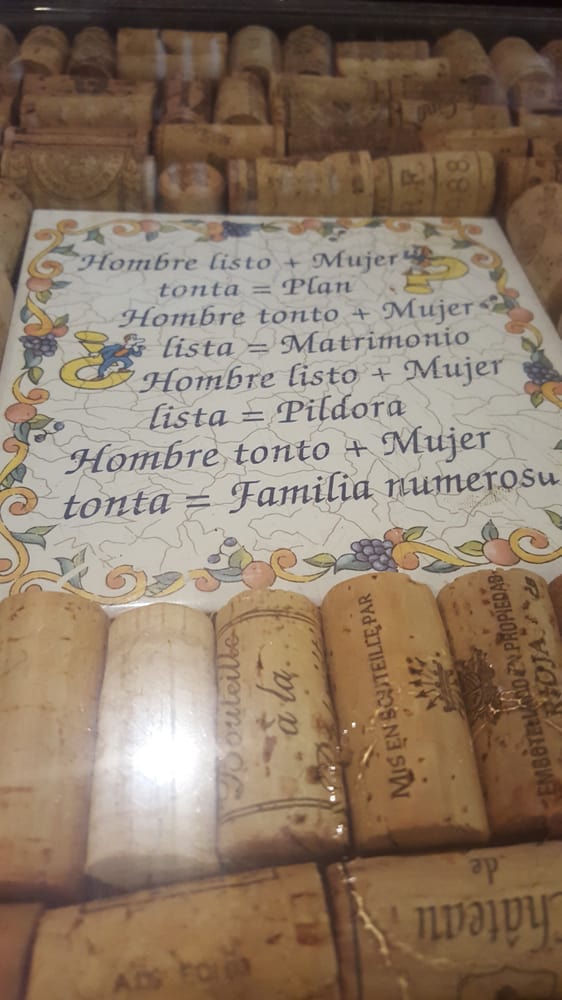 Hombre listo + Mujer
tonta = Plan
Hombre tonto + Mujer
lista = Matrimonio
Hombre listo + Mujer
lista = Pildora
Hombre tonto + Mujer
tonta = Familia numerosu
Bouteille
à la
MIS EN BOUTEILLE PAR
EMBOTELLADO EN PROPIEDAD
RIOJA
Château
de